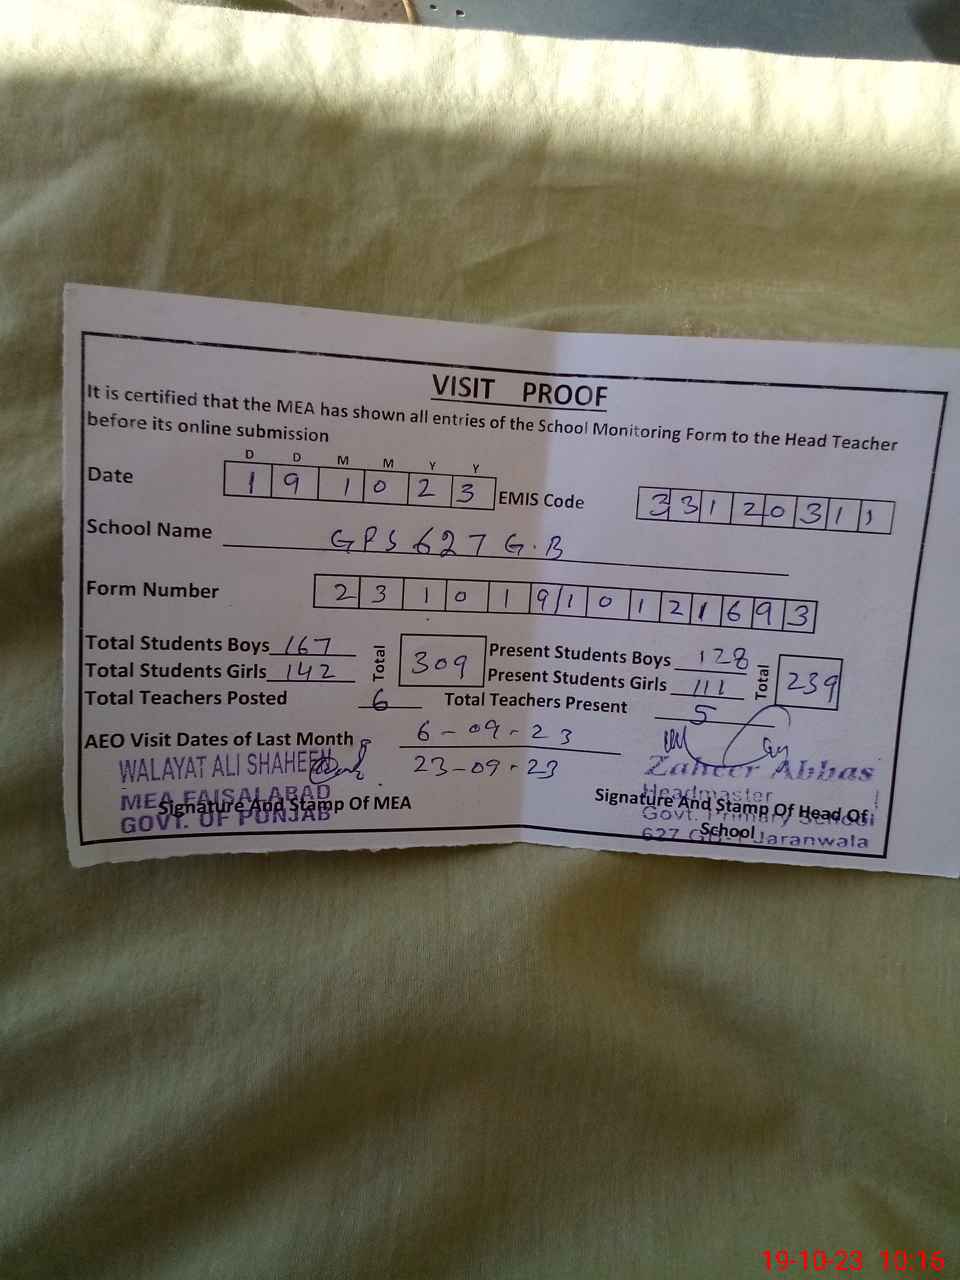 VISIT PROOF
It is certified that the MEA has shown all entries of the School Monitoring Form to the Head Teacher
before its online submission
D D M M Y Y
Date 1 9 1 0 2 3 EMIS Code 3 3 1 2 0 3 1 1
School Name GPS 627 G.B
Form Number 2 3 1 0 1 9 1 0 1 2 1 6 9 3
Total Students Boys 167 Total 309 Present Students Boys 128 Total 239
Total Students Girls 142 Present Students Girls 111
Total Teachers Posted 6 Total Teachers Present 5
AEO Visit Dates of Last Month 6-09-23
23-09-23
WALAYAT ALI SHAHEEN
MEA FAISALABAD
GOVT. OF PUNJAB
Signature And Stamp Of MEA
Zaheer Abbas
Headmaster
Govt. Primary School
627 Jaranwala
Signature And Stamp Of Head Of
School
19-10-23 10:16